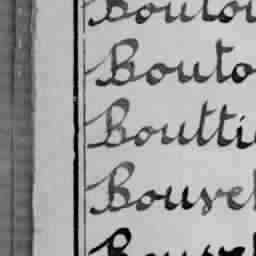 Boutou
Bouto
Boutti
Bouve